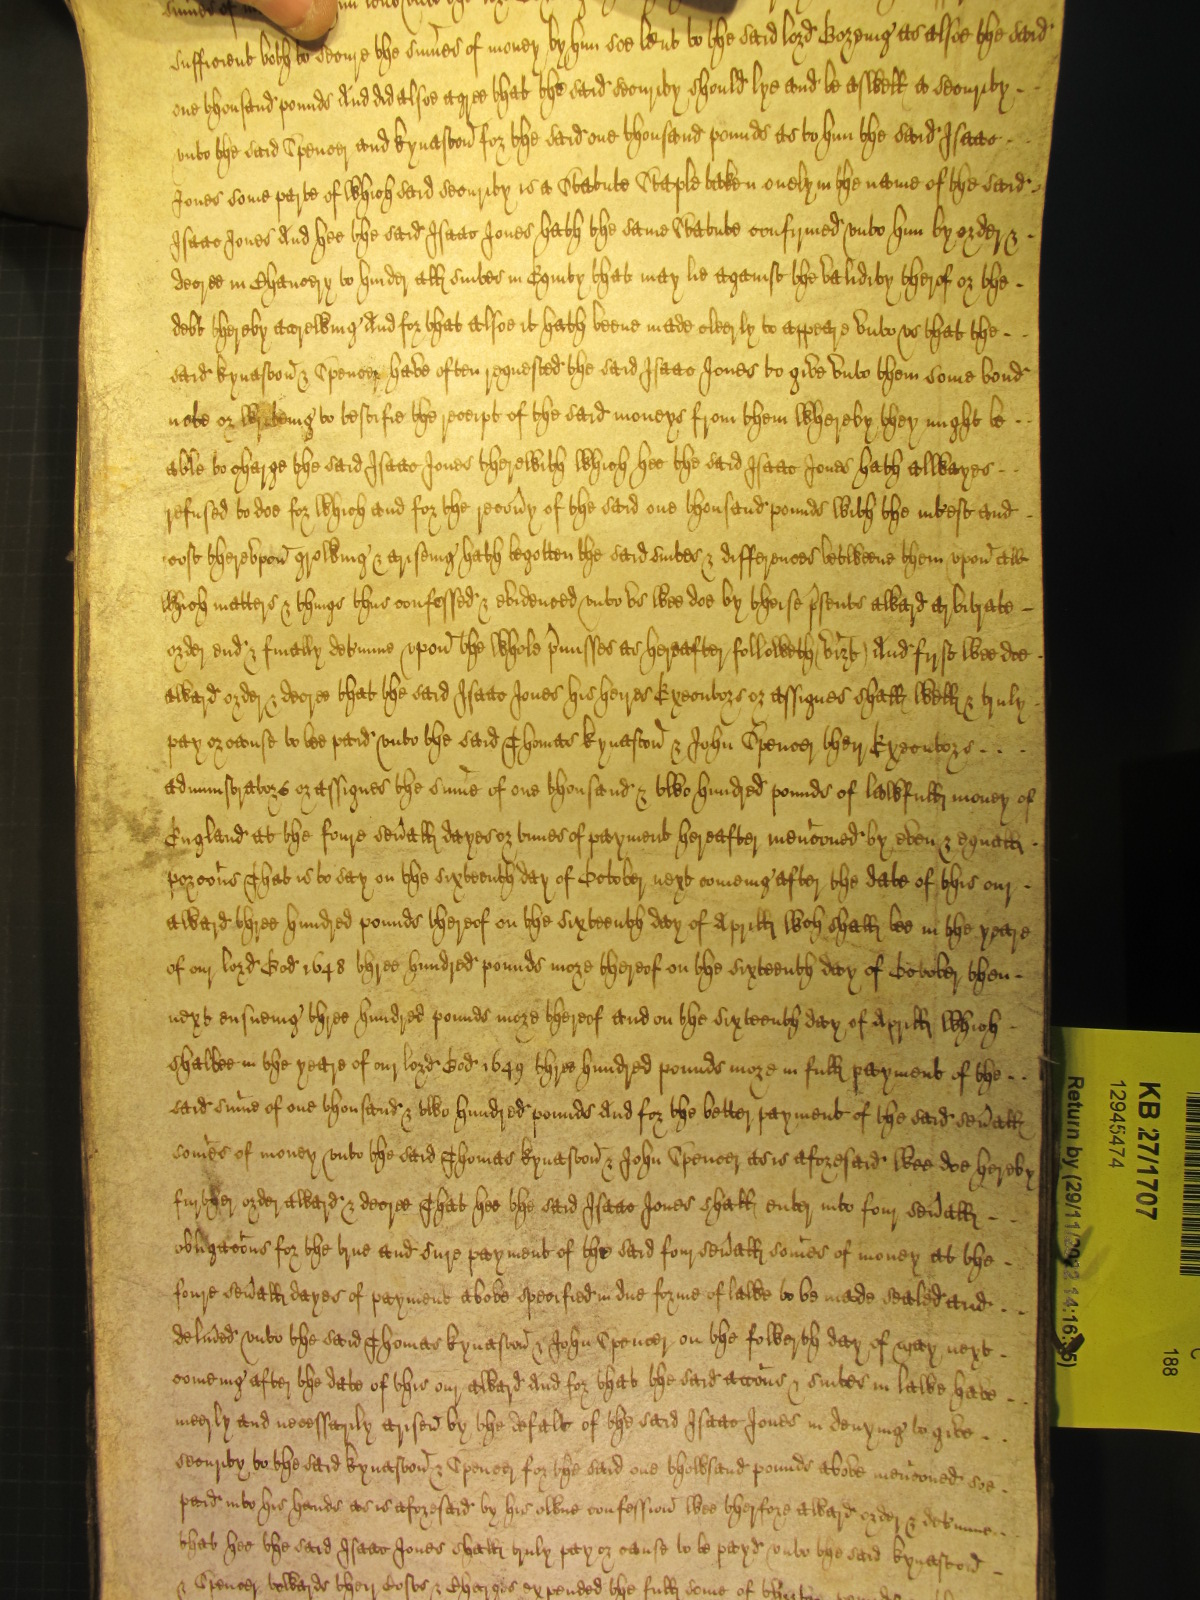 sufficient both to secure the sum̃es of money by him soe lent to the said lord Goreing as alsoe the said
one thousand pounds And did alsoe agree that the said security should lye and be aswell a security
vnto the said Spencer and Kynaston for the said one thousand pounds as to him the said Isaac
Jones some parte of which said security is a Statute Staple taken onely in the name of the said
Isaac Jones And hee the said Isaac Jones hath the same Statute confirmed vnto him by order &
decree in Chancery to hinder all suites in Equity that may lie against the validity therof or the
debt thereby accrewing And for that alsoe it hath beene made cleerly to appeare vnto vs that the
said Kynaston & Spencer have often requested the said Isaac Jones to give vnto them some bond
note or writeing to testifie the receipt of the said moneys from them whereby they might be
able to charge the said Isaac Jones therewith which hee the said Isaac Jones hath allwayes
refused to doe for which and for the recoṽy of the said one thousand pounds with the int'est and
cost therevpon growing & ariseing hath begotten the said suites & differences betweene them vpon all
which matters & things thus confessed & evidenced vnto vs wee doe by theise p̃sents award arbitrate
order end & finally det'mine vpon the whole p̃misses as hereafter followeth (vizt) And first wee doe
award order & decree that the said Isaac Jones his heires Executors or assignes shall well & truly
pay or cause to bee paid vnto the said Thomas Kynaston & John Spencer their Executors
administrators or assignes the sum̃e of one thousand & two hundred pounds of lawfull money of
England at the foure seṽall dayes or times of payment hereafter menc̃oned by even & equall
porc̃ons That is to say on the sixteenth day of October next comeing after the date of this our
award three hundred pounds thereof on the sixteenth day of Aprill wch shall bee in the yeare
of our lord God 1648 three hundred pounds more thereof on the sixteenth day of October then
next ensueing three hundred pounds more thereof and on the sixteenth day of Aprill which
shalbee in the yeare of our lord God 1649 three hundred pounds more in full payment of the
said sum̃e of one thousand & two hundred pounds And for the better payment of the said seṽall
som̃es of money vnto the said Thomas Kynaston & John Spencer as is aforesaid wee doe hereby
further order award & decree That hee the said Isaac Jones shall enter into four seṽall
obligac̃ons for the true and sure payment of the said four seṽall som̃es of money at the
foure seṽall dayes of payment above specified in due forme of lawe to be made sealed and
deliṽed vnto the said Thomas Kynaston & John Spencer on the fowerth day of may next
comeing after the date of this our award And for that the said acc̃ons & suites in lawe have
meerly and necessarily arisen by the default of the said Isaac Jones in denying to give
security to the said Kynaston & Spencer for the said one thowsand pounds above menc̃oned soe
paid into his hands as is aforesaid by his owne confession wee therfore award order & det'mine
that hee the said Isaac Jones shall truly pay or cause to be payd vnto the said Kynaston
& Spencer towards their Costs & Charges expended the full some of
KB 27/1707
12945474
Return by (29/11/2022 14:16:35)
188